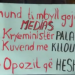 mund ti mbyll goj
MEDIAS
Kryeminister PALO
Kuvend me KILOU
Opozitë që HESH